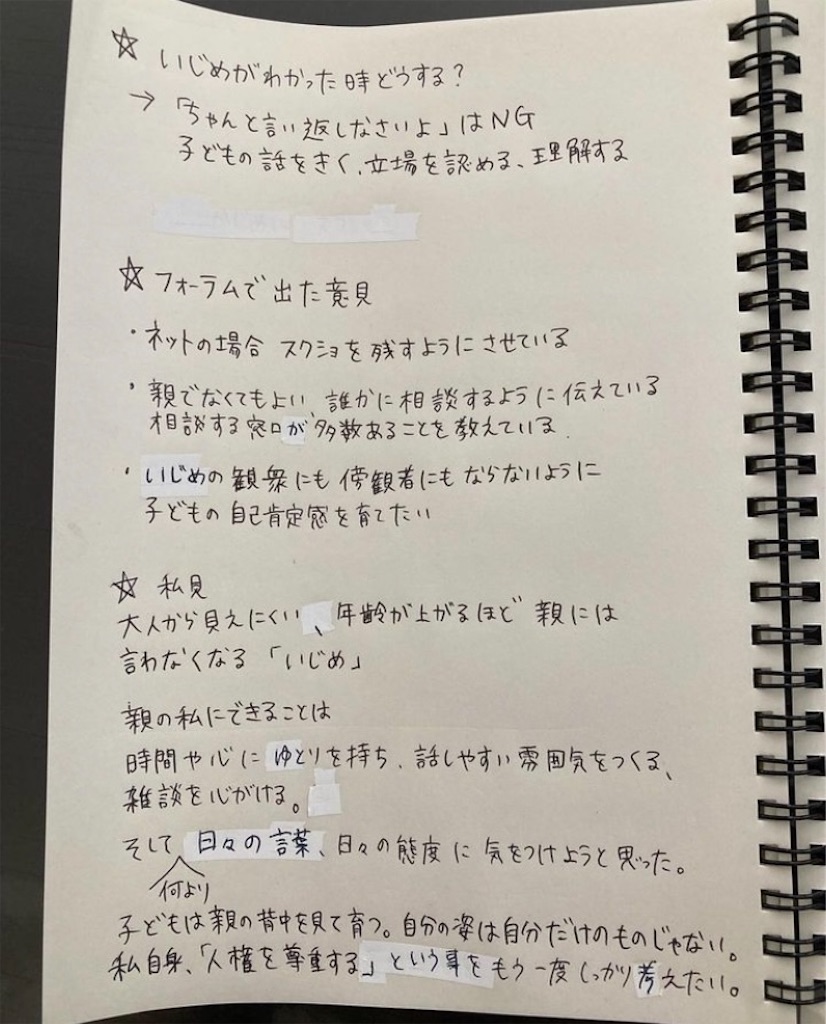 ☆ いじめがわかった時どうする?
→ 「ちゃんと言い返しなさいよ」はNG
子どもの話をきく、立場を認める、理解する
☆ フォーラムで出た意見
・ネットの場合 スクショを残すようにさせている
・親でなくてもよい 誰かに相談するように伝えている
相談する窓口が多数あることを教えている.
・いじめの観衆にも傍観者にもならないように
子どもの自己肯定感を育てたい
☆ 私見
大人から見えにくい、年齢が上がるほど親には
言わなくなる「いじめ」
親の私にできることは
時間や心にゆとりを持ち、話しやすい雰囲気をつくる、
雑談を心がける。
そして 日々の言葉、日々の態度に気をつけようと思った。
何より
子どもは親の背中を見て育つ。自分の姿は自分だけのものじゃない。
私自身、「人権を尊重する」という事をもう一度しっかり考えたい。